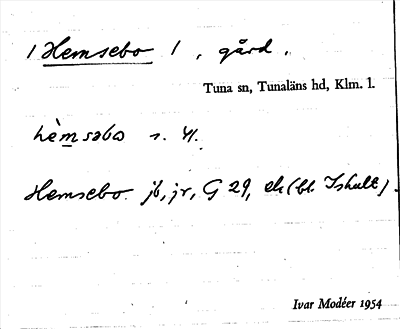 1 Hemsebo 1, gård.
Tuna sn, Tunaläns hd, Klm. l.
hèmsəbo s. 4.
Hemsebo jb, jr, G 29, ek (bl. Ishult).
Ivar Modéer 1954